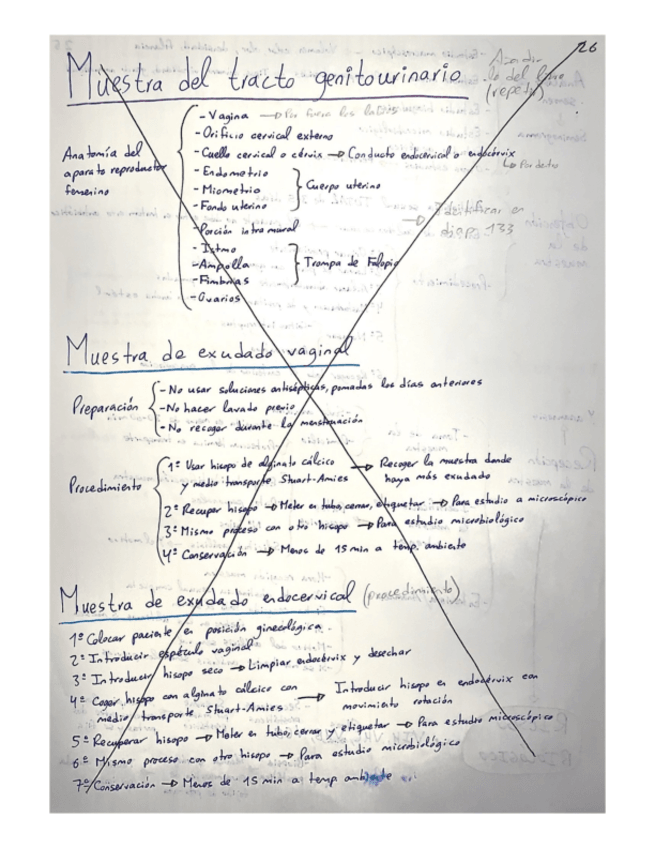 26
Muestra del tracto genitourinario
Añadir
lo del
(repetir)
Anatomía del
aparato reproductor
femenino
- Vagina → Por fuera los labios
- Orificio cervical externo
- Cuello cervical o cérvix → Conducto endocervical o endocérvix
↳ Por dentro
- Endometrio
- Miometrio
- Fondo uterino
Cuerpo uterino
- Porción intramural
→ Identificar en
diap 133
- Istmo
- Ampolla
- Fimbrias
Trompa de Falopio
- Ovarios
Muestra de exudado vaginal
Preparación
- No usar soluciones antisépticas, pomadas los días anteriores
- No hacer lavado previo
- No recoger durante la menstruación
Procedimiento
1º Usar hisopo de alginato cálcico → Recoger la muestra donde
y medio transporte Stuart-Amies haya más exudado
2º Recuper hisopo → Meter en tubo, cerrar, etiquetar → Para estudio a microscópico
3º Mismo proceso con otro hisopo → Para estudio microbiológico
4º Conservación → Menos de 15 min a temp. ambiente
Muestra de exudado endocervical (procedimiento)
1º Colocar paciente en posición ginecológica
2º Introducir espéculo vaginal
3º Introducir hisopo seco → Limpiar endocérvix y desechar
4º Coger hisopo con alginato cálcico con → Introducir hisopo en endocérvix con
medio transporte Stuart-Amies movimiento rotación
5º Recuperar hisopo → Meter en tubo, cerrar y etiquetar → Para estudio microscópico
6º Mismo proceso con otro hisopo → Para estudio microbiológico
7º Conservación → Menos de 15 min a temp ambiente